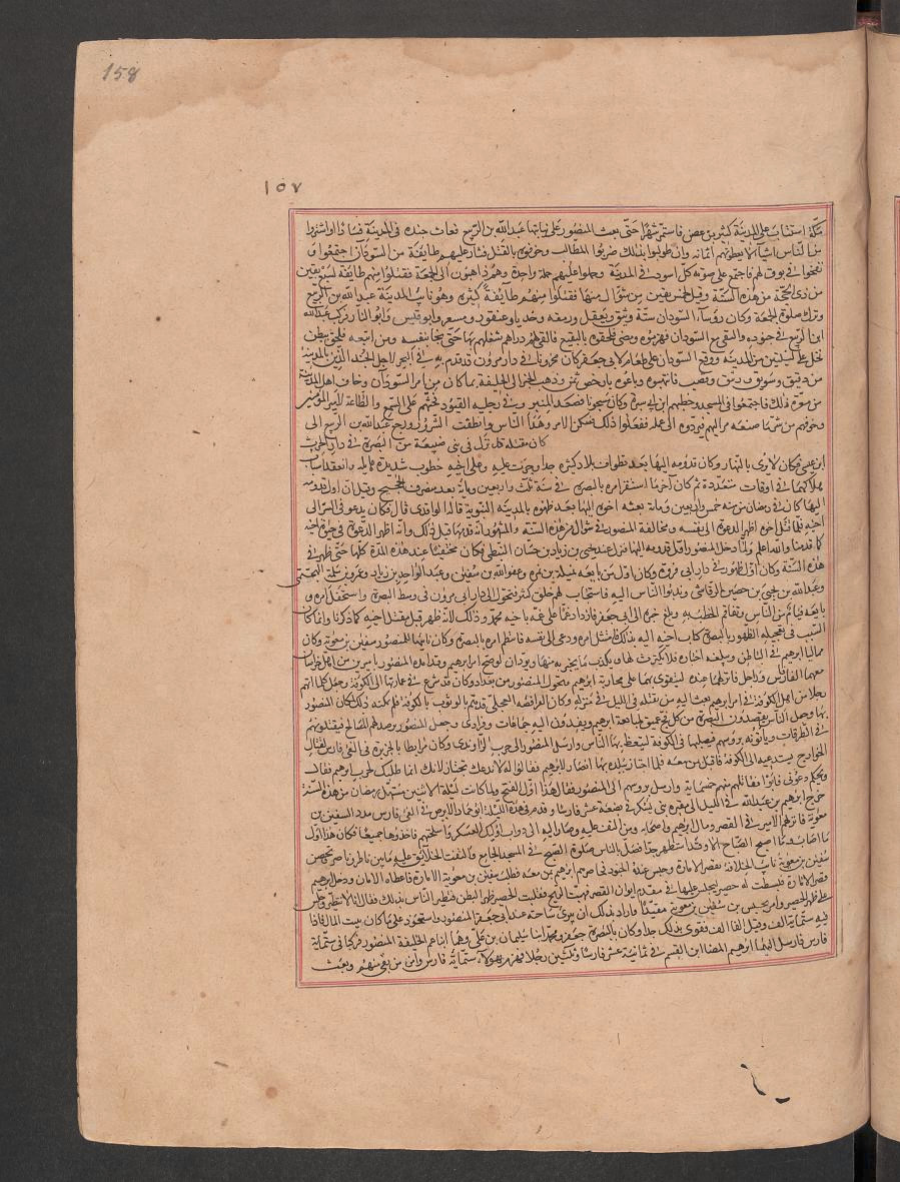 158
١٥٧
مكة استناب على المدينة كثير بن حصن فاستمر شهرا حتى بعث المنصور على نيابتها عبد الله بن الربيع فعاث جنده في المدينة فسادا واشتروا
من الناس اشيا لا يعطونهم اثمانه وان طولبوا بذلك ضربوا المطالب وخوفوه بالقتل فثار عليهم طايفة من السودان اجتمعوا و
نفخوا في بوق لهم فاجتمع على صوته كل اسود في المدينة وحملوا عليهم حملة واحدة وهم ذاهبون الى الجمعة فقتلوا منهم طايفة لسبع بقين
من ذي الحجة من هذه السنة وقيل لخمس بقين من شوال منها فقتلوا منهم طايفة كثيرة وهو نايب المدينة عبد الله بن الربيع
وترك صلوة الجمعة وكان روساء السودان ستة وثيق ويعقل ورمقة وحديا وعنقود ومسعر وابو قيس وابو النار فركب عبد الله
ابن الربيع في جنوده والتقى مع السودان فهزموه ومضى فلحقوه بالبقيع فالقى لهم دراهم شغلهم بها حتى نجا بنفسه ومن اتبعه فلحق ببطن
نخل على ليلتين من المدينة ووقع السودان على طعام لابي جعفر كان مخزونا في دار مروان قد قدم به في البحر لاجل الجند الذين بالمدينة
من دقيق وسويق وزيت وقصب فانتهبوه وباعوه بارخص ثمن وذهب الخبر الى الخليفة بما كان من امر السودان وخاف اهل المدينة
من معرة ذلك فاجتمعوا في المسجد وخطبهم ابن ابي سبرة وكان مسجونا فصعد المنبر وفي رجليه القيود فحثهم على السمع والطاعة لامير المؤمنين
وخوفهم من شر ما صنعه مواليهم فيردوه الى عمله ففعلوا ذلك فسكن الامر وهدا الناس وانطفت الشرور ورجع عبد الله بن الربيع الى
كان مقتله قد نزل في بني ضبيعة من البصرة في دار الحرث
ابن عيسى وكان لا يرى بالنهار وكان قدومه اليها بعد تطواف بلاد كثيرة جدا وجرت عليه وعلى اخيه خطوب شديدة هايلة وانعقد اسباب
هلاكهما في اوقات متعددة ثم كان آخر ما استقر امره بالبصرة في سنة ثلث واربعين وماية بعد منصرف الحجيج وقيل ان اول قدومه
اليها كان في رمضان من سنة خمس واربعين وماية بعثه اخوه اليها بعد ظهوره بالمدينة النبوية قاله الواقدي قال وكان يدعو في السر الى
اخيه فلما قتل اخوه اظهر الدعوة الى نفسه ومخالفة المنصور في شوال من هذه السنة والمشهور انه قدمها قبل ذلك وانه اظهر الدعوة في حيوة اخيه
كما قدمنا والله اعلم ولما دخل المنصور اول قدومه اليها نزل عند يحيى بن زياد بن حسان النبطي فكان مختفيا عنده هذه المدة كلها حتى ظهر في
هذه السنة وكان اول ظهوره في دار ابي فروة وكان اول من بايعه نميلة بن مرة وعفو الله بن سفين وعبد الواحد بن زياد وعمرو بن سلمة الهجيمي
وعبد الله بن يحيى بن حصين الرقاشي وندبوا الناس اليه فاستجاب لهم خلق كثير فتحول الى دار ابي مروان في وسط البصرة واستفحل امره و
بايعه فيام من الناس وتفاقم الخطب به وبلغ خبره الى ابي جعفر فازداد غما على غمه باخيه محمد وذلك لانه ظهر قبل مقتل اخيه كما ذكرنا وانما كان
السبب في تعجيله الظهور بالبصرة كتاب اخيه اليه بذلك فامتثل امره ودعى الى نفسه فانتظم امره بالبصرة وكان نايبها للمنصور سفين بن معوية وكان
مماليا لابرهيم في الباطن ويبلغه اخباره فلا يكترث لها ويكذب ما يخبر به منها ويود ان لو صح امر ابرهيم وقد امده المنصور باميرين من اهل خراسان
معهما الفا فارس وراجل فانزلهما عنده ليتقوى بهما على محاربة ابرهيم وتحول المنصور من بغداد وكان قد شرع في عمارتها الى الكوفة وجعل كلما اتهم
رجلا من اهل الكوفة في امر ابرهيم بعث اليه من يقتله في الليل في منزله وكان الفرافصة العجلي قد هم بالوثوب بالكوفة فلم يمكنه ذلك لمكان المنصور
بها وجعل الناس يقصدون البصرة من كل فج عميق لمبايعة ابرهيم ويفدون اليه جماعات وفرادى وجعل المنصور يرصد لهم المسالح فيقتلونهم
في الطرقات وياتونه بروسهم فيصلبها في الكوفة ليتعظ بها الناس وارسل المنصور الى حرب الراوندي وكان مرابطا بالجزيرة في الفي فارس لقتال
الخوارج يستدعيه الى الكوفة فاقبل بمن معه فلما اجتاز ببلدة بها انصار لابرهيم فقالوا له لا ندعك تجتاز لانك انما طلبك لحرب ابرهيم فقال
ويحكم دعوني فابوا فقاتلهم فقتل منهم خمسماية وارسل بروسهم الى المنصور فقال هذا اول الفتح ولما كانت ليلة الاثنين مستهل رمضان من هذه السنة
خرج ابرهيم بن عبد الله في الليل الى مقبرة بني يشكر في بضعة عشر فارسا وقدم في هذه الليلة ابو حماد الابرص في الفي فارس مددا لسفين بن
معوية فانزلهم الامير في القصر ومال ابرهيم واصحابه ومن التف عليه وصار اليه الى دواب اولئك العسكر واسلحتهم فاخذوها جميعا فكان هذا اول
ما اصاب وما اصبح الصباح الا وقد استظهر جدا فصلى بالناس صلوة الصبح في المسجد الجامع والتفت الخلايق عليه ما بين ناظر وناصر وتحصن
سفين بن معوية نايب الخلافة بقصر الامارة وحبس عنده الجنود فحاصرهم ابرهيم بمن معه فطلب سفين بن معوية الامان فاعطاه الامان ودخل ابرهيم
قصر الامارة فبسطت له حصير ليجلس عليها في مقدم ايوان القصر فهبت الريح فقلبت الحصير ظهرا لبطن فتطير الناس بذلك فقال انا لا نتطير وجلس
على ظهر الحصير وامر بحبس سفين بن معوية مقيدا واراد بذلك ان يبرى ساحته عند ابي جعفر المنصور واستحوذ على ما كان ببيت المال فاذا
فيه ستماية الف وقيل الفا الف فقوى بذلك جدا وكان بالبصرة جعفر ومحمد ابنا سليمان بن علي وهما ابنا عم الخليفة المنصور فركبا في ستماية
فارس فارسل اليهما ابرهيم المضا ابن القسم في ثمانية عشر فارسا وثلثين رجلا فهزم بهولاء ستماية فارس وامن من بقي منهم وبعث